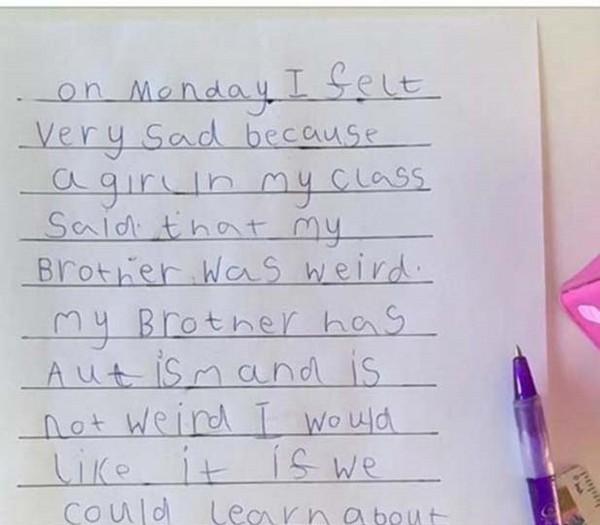 on Monday I felt
Very Sad because
a girl in my class
Said that my
Brother was weird.
my Brother has
Autism and is
not weird I would
like it if we
could learn about